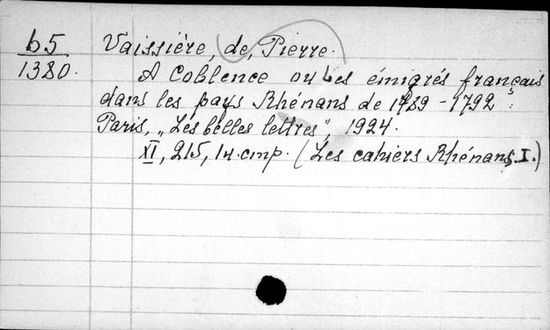 б5 Vaissière, de, Pierre.
1380. A Coblence ou Les émigrés français
dans les pays Rhénans de 1789-1792.
Paris, „Les belles lettres", 1924.
XI, 215, 1 н. стр. (Les cahiers Rhénans, I.)